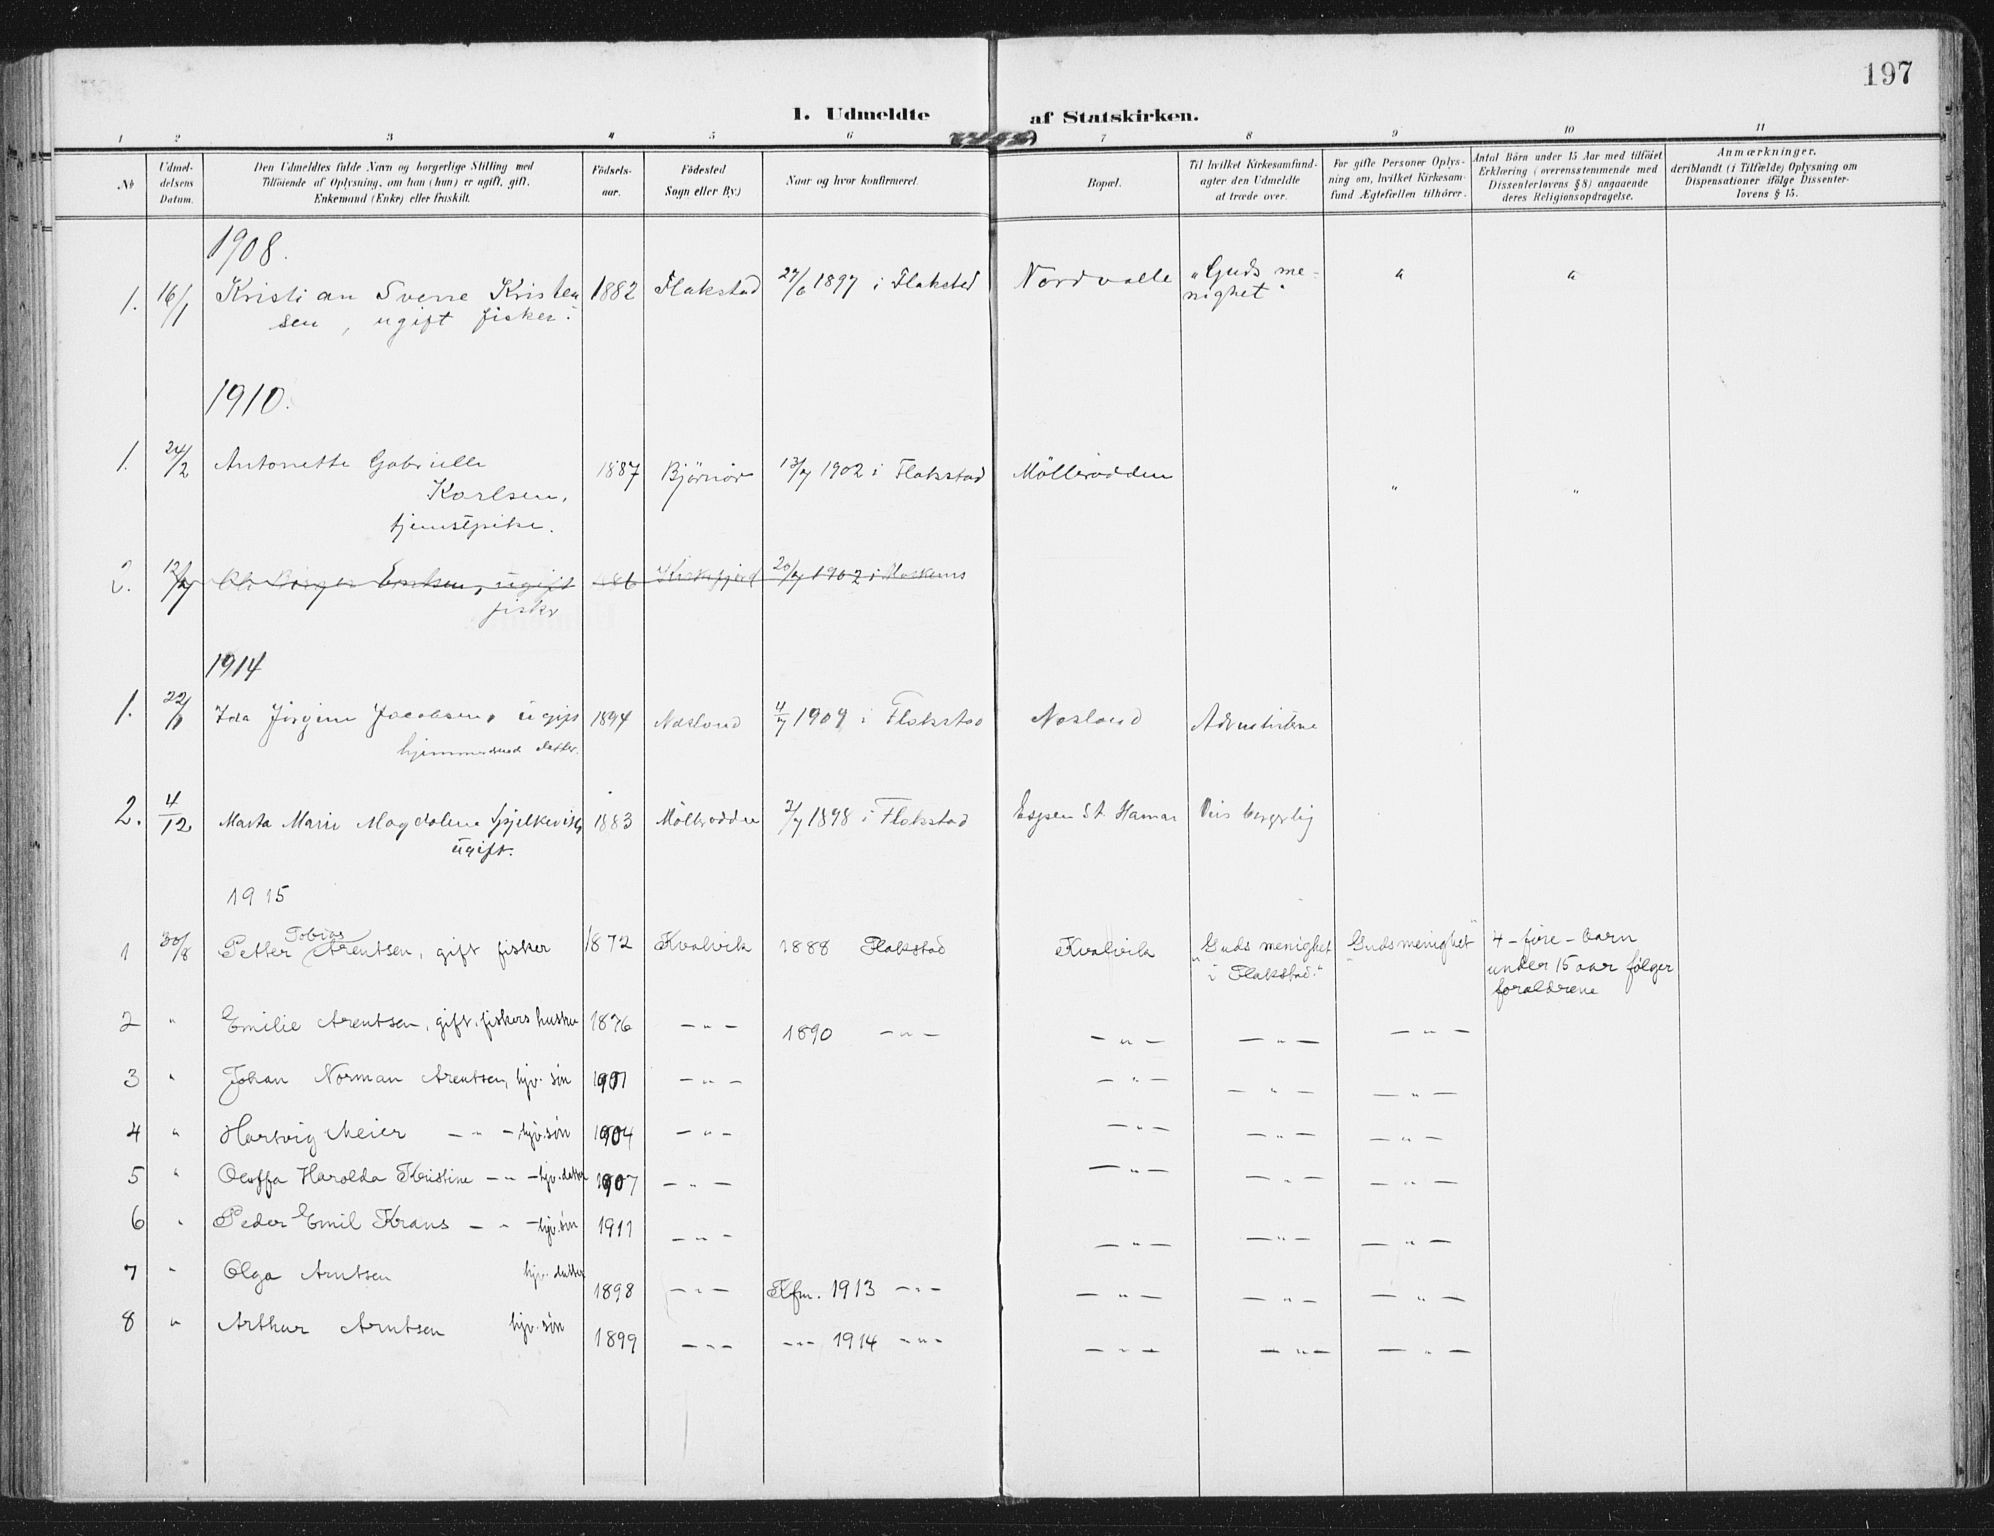 197
1. Udmeldte af Statskirken.
1 2 3 4 5 6 7 8 9 10 11
№
Udmeldelsens Datum.
Den Udmeldtes fulde Navn og borgerlige Stilling med
Tilföiende af Oplysning, om han (hun) er ugift, gift,
Enkemand (Enke) eller fraskilt.
Födselsaar.
Födested
Sogn eller By.)
Naar og hvor konfirmeret.
Bopæl.
Til hvilket Kirkesamfund-
agter den Udmeldte
at træde over.
For gifte Personer Oplys-
ning om, hvilket Kirkesam-
fund Ægtefællen tilhörer.
Antal Börn under 15 Aar med tilföiet
Erklæring (overensstemmende med
Dissenterlovens § 8) angaaende
deres Religionsopdragelse.
Anmærkninger,
deriblandt (i Tilfælde) Oplysning om
Dispensationer ifölge Dissenter-
lovens § 15.
1908.
1. 16/1 Kristian Sverre Kristen 1882 Flakstad 27/6 1897 i Flakstad Nordvalle "Guds me- " "
sen, ugift fisker. nighet"
1910.
1. 24/2 Antonette Gabrielle 1887 Bjørnør 13/7 1902 i Flakstad Möllerodden
Karlsen, " "
tjenestpike.
2. 12/7 Eriksen, ugift 20/7 1902 i Moskenes
fisker
1914
1. 22/1 Ida Jørgine Jacobsen, ugift 1894 Næsland 4/7 1909 i Flakstad Nesland Adventisterne
hjemmeværende datter.
2. 4/12 Marta Marie Magdalene 1883 Möllerodden 2/7 1898 i Flakstad Espen St. Hamar borgerlig
ugift.
1915
1 30/8 Petter Tobias Arentsen, gift fisker 1872 Kvalvik 1888 Flakstad Kvalvik "Guds menighet "Guds menighet" 4 - fire - barn
i Flakstad." under 15 aar følger
foraldrene
2 " Emilie Arentsen, gift, fiskers hustru 1876 - " - 1890 - " - - " - - " - - " -
3 " Johan Norman Arentsen, hjv. søn 1901 - " - - " - - " - - " -
4 " Hartvig Meier - " - hjv. søn 1904 - " - - " - - " - - " -
5 " Harolda Kristine - " - hjv. datter 1907 - " - - " - - " - - " -
6 " Peder Emil Krans - " - hjv. søn 1911 - " - - " - - " - - " -
7 " Olga Arntsen hjv. datter 1898 - " - Kfm. 1913 - " - - " - - " - - " -
8 " Arthur Arntsen hjv. søn 1899 - " - - " - 1914 - " - - " - - " - - " -